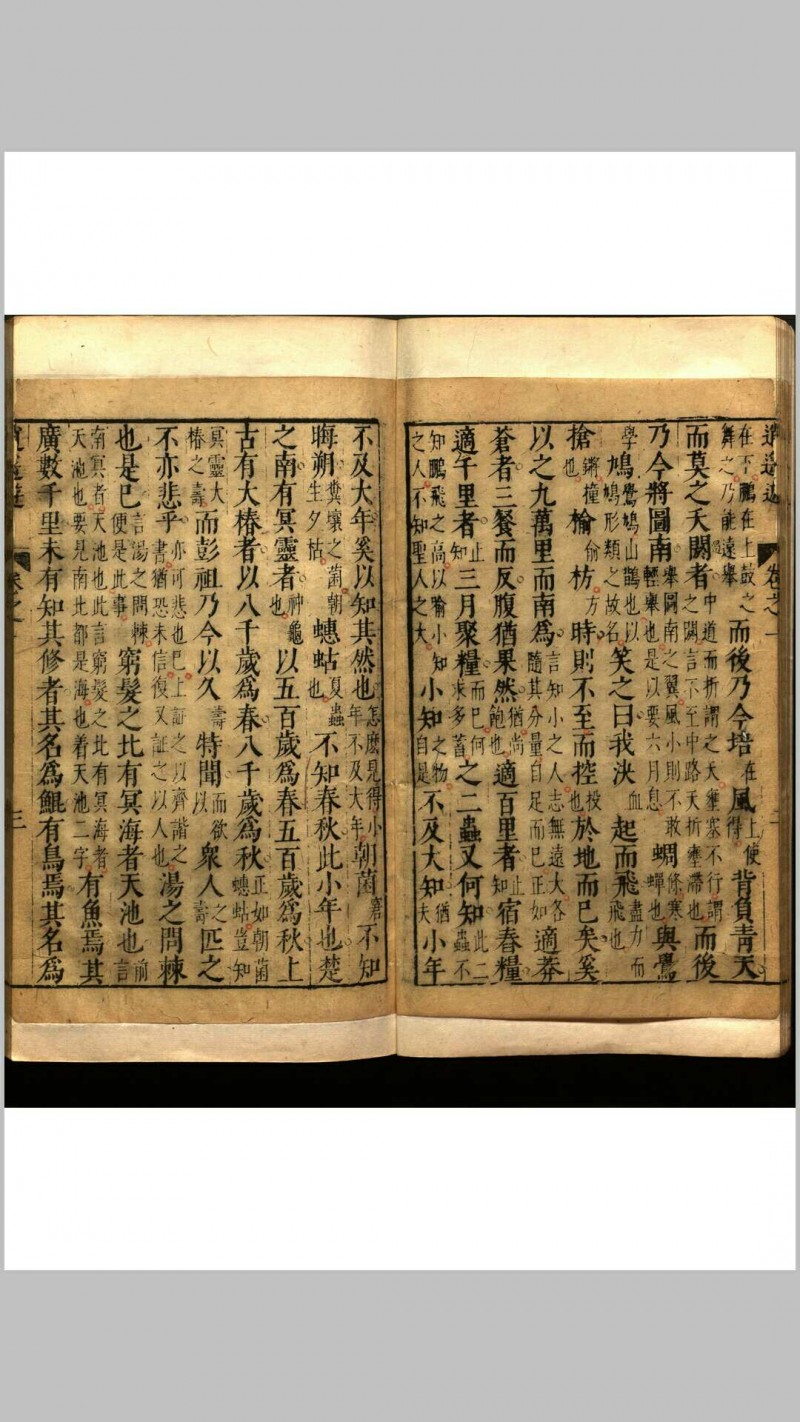 逍遥遊 卷之一 二
在下鵬在上鼓之舞之乃能遠舉而後乃今培在風上使得背負青天
而莫之夭閼者中道而折謂之夭壅塞不行謂之閼言不至中路夭折壅滯也而後
乃今將圖南舉圖南之翼風小則不敢輕舉也是以要六月息蜩條寒蟬也與鷽
學鳩鷽鳩山鵲也以鳩形類之故名笑之曰我決血起而飛盡力而飛也
搶鏘撞也榆俞枋方時則不至而控投也於地而已矣奚
以之九萬里而南爲言知小之人志無遠大各隨其分量自足而已正如適莽
蒼者三餐而反腹猶果然猶尚飽也適百里者止知宿舂糧
適千里者止知三月聚糧而已何求多蓄之二蟲又何知此二蟲不
知鵬飛之高以喻小知之人不知聖人之大小知之物自是不及大知猶夫小年
不及大年奚以知其然也怎麽見得小年不及大年朝菌窘不知
晦朔糞壤之菌朝生夕枯蟪蛄夏蟲也不知春秋此小年也楚
之南有冥靈者神龜也以五百歲爲春五百歲爲秋上
古有大椿者以八千歲爲春八千歲爲秋正如朝菌蟪蛄豈知
冥靈大椿之壽而彭祖乃今以久壽特聞而欲以衆人之壽匹之
不亦悲乎亦可悲也已上証之以齊諧之書猶恐未信復又証之以人也湯之問棘
也是已言湯之問棘便是此事窮髮之北有冥海者天池也前言
南冥者天池也此言窮髮之北有冥海者天池也要見南北都是海也着天池二字有魚焉其
廣數千里未有知其修者其名爲鯤有鳥焉其名爲
逍遥遊 卷之一 三